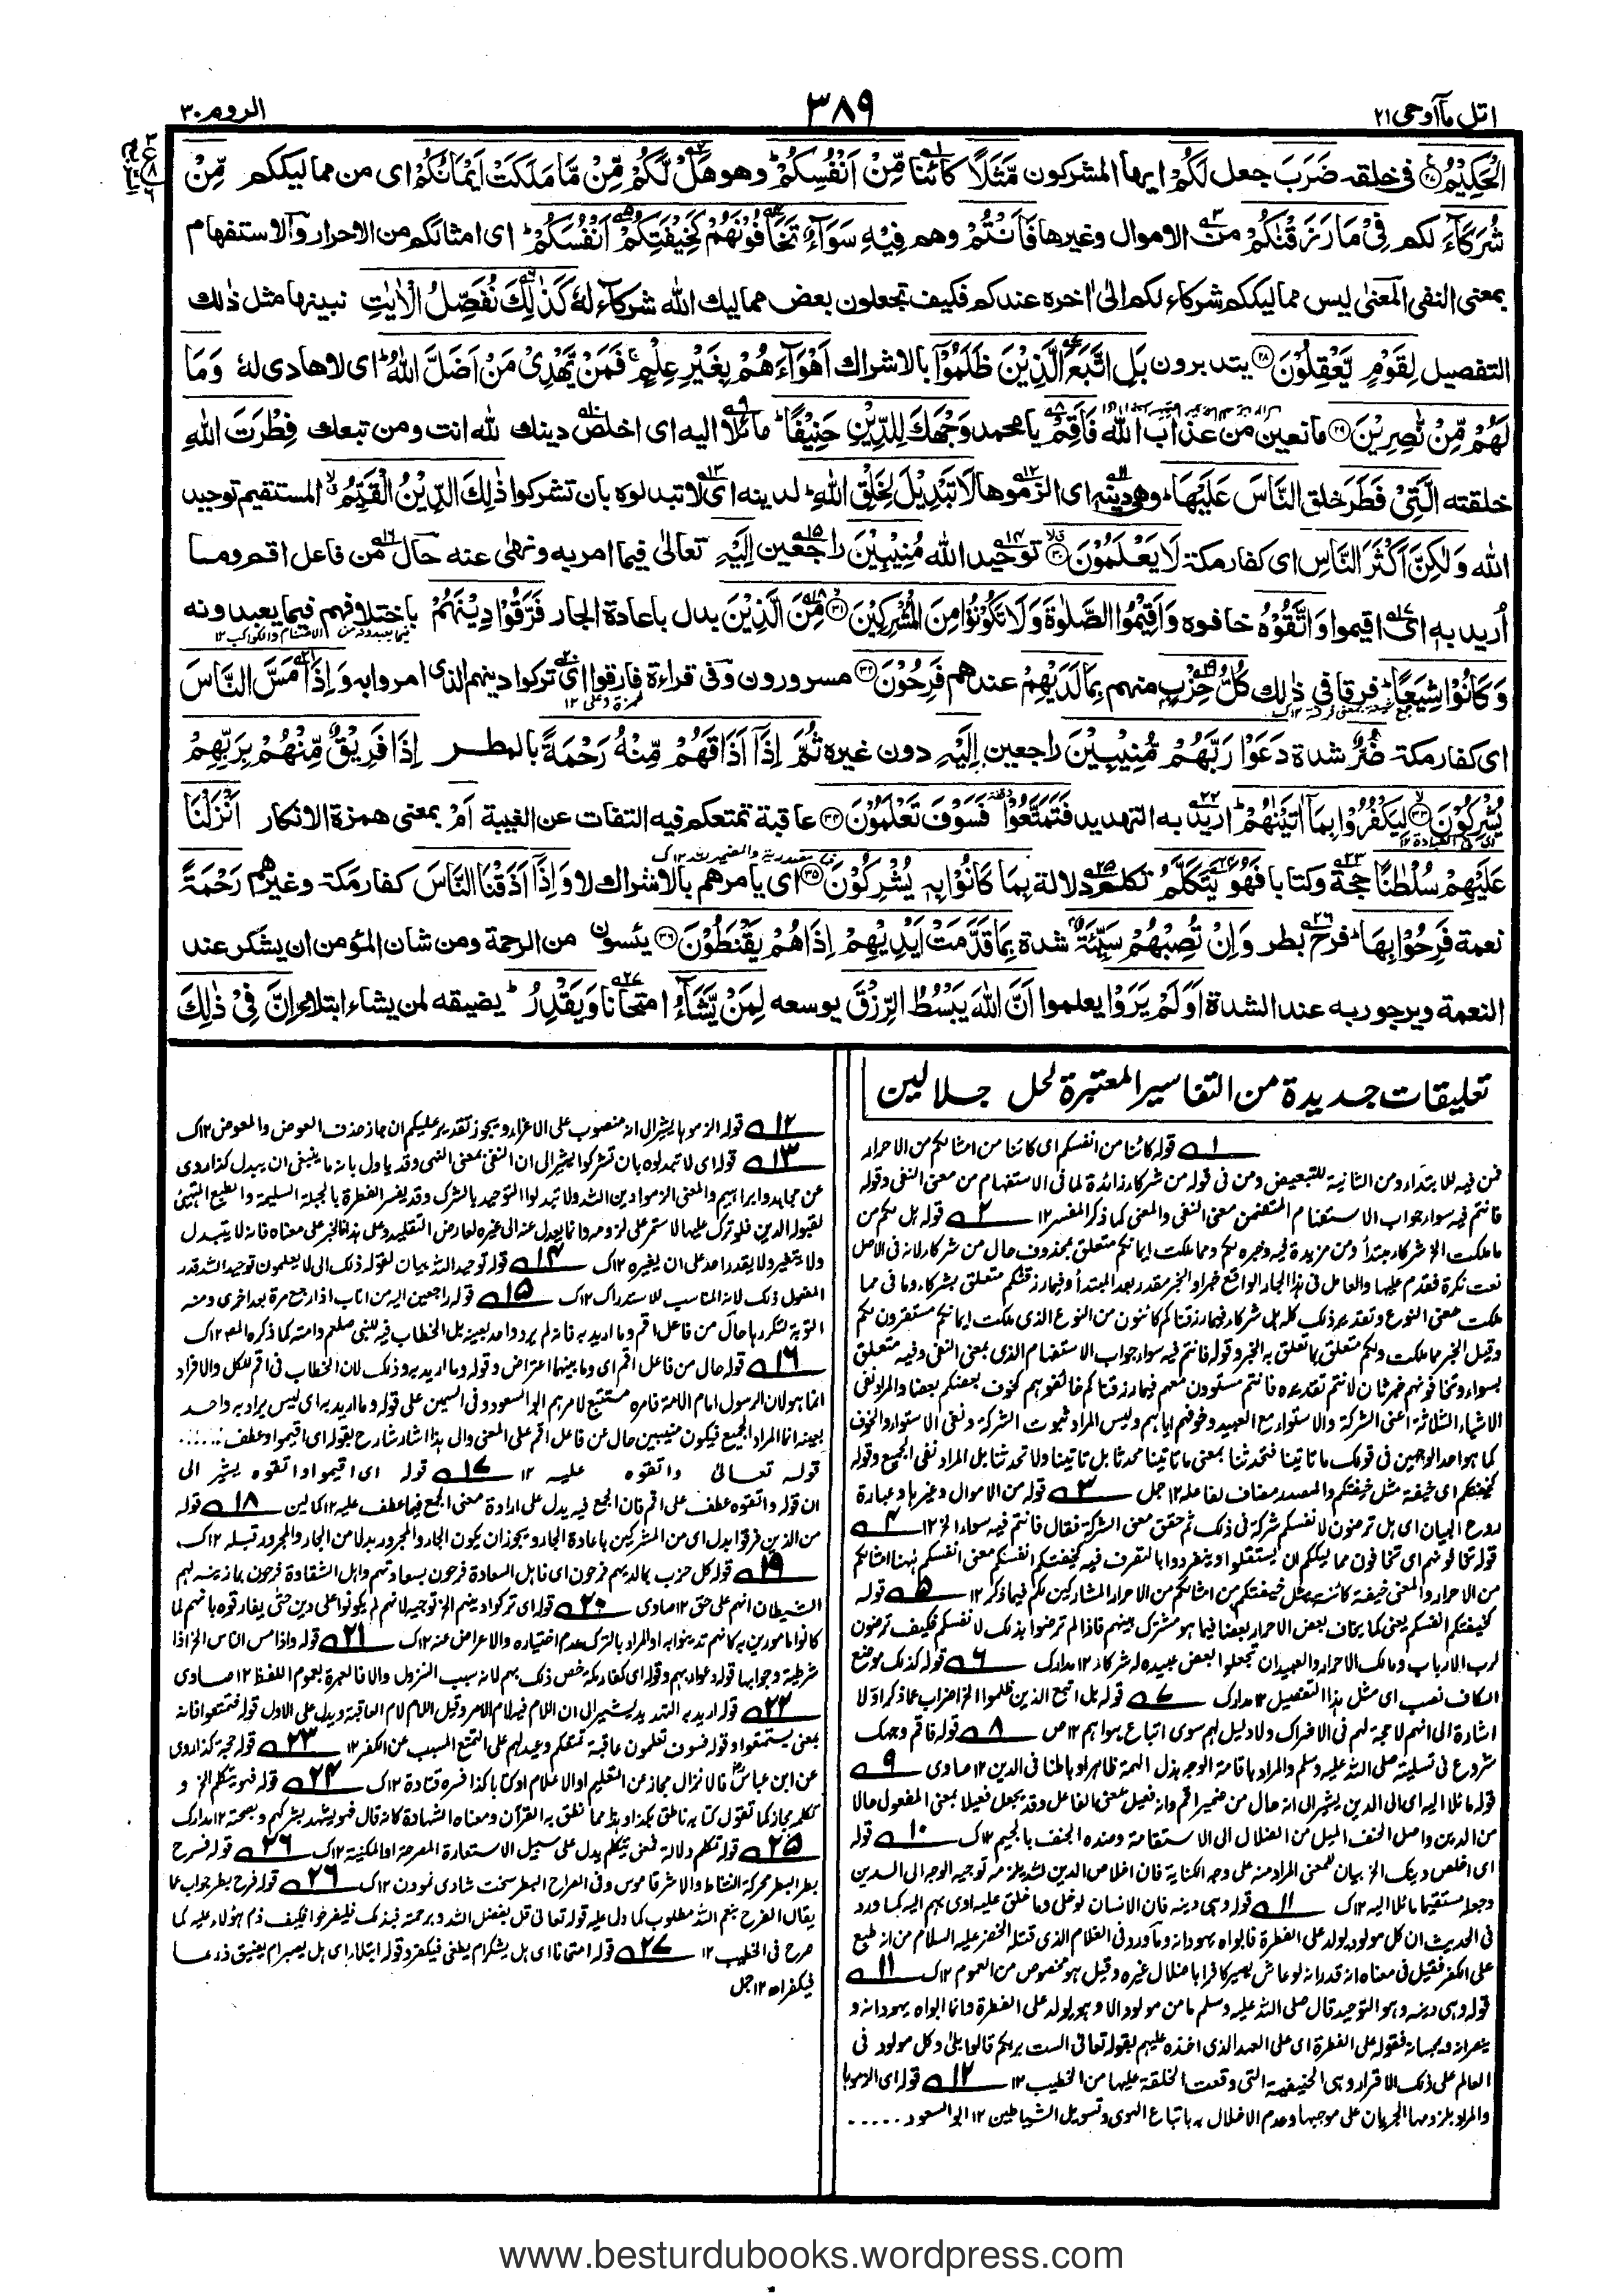 اتل مآاوحی۲۱
۳۸۹
الروم۳۰
الْحَكِيْمُ ۲۷ فی خلقه ضَرَبَ جعل لَكُمْ ایها المشركون مَّثَلًا كائنا مِّنْ اَنْفُسِكُمْ وهو هَلْ لَّكُمْ مِّنْ مَّا مَلَكَتْ اَيْمَانُكُمْ ای من مماليككم مِّنْ
شُرَكَآءَ لكم فِيْ مَا رَزَقْنٰكُمْ من الاموال وغيرها فَاَنْتُمْ وهم فِيْهِ سَوَآءٌ تَخَافُوْنَهُمْ كَخِيْفَتِكُمْ اَنْفُسَكُمْ ای امثالكم من الاحرار والاستفهام
بمعنی النفی المعنٰی ليس مماليككم شركاء لكم الیٰ اٰخره عندكم فكيف تجعلون بعض مماليك الله شركآء له كَذٰلِكَ نُفَصِّلُ الْاٰيٰتِ نبينها مثل ذٰلك
التفصيل لِقَوْمٍ يَّعْقِلُوْنَ ۲۸ يتدبرون بَلِ اتَّبَعَ الَّذِيْنَ ظَلَمُوْٓا بالاشراك اَهْوَآءَهُمْ بِغَيْرِ عِلْمٍ فَمَنْ يَّهْدِيْ مَنْ اَضَلَّ اللّٰهُ ای لا هادی له وَمَا
لَهُمْ مِّنْ نّٰصِرِيْنَ ۲۹ مانعين من عذاب الله فَاَقِمْ يا محمد وَجْهَكَ لِلدِّيْنِ حَنِيْفًا مائلا اليه ای اخلص دينك لله انت ومن تبعك فِطْرَتَ اللّٰهِ
خلقته الَّتِيْ فَطَرَ خلق النَّاسَ عَلَيْهَا وهی دينه ای الزموها لَا تَبْدِيْلَ لِخَلْقِ اللّٰهِ لدينه ای لا تبدلوه بان تشركوا ذٰلِكَ الدِّيْنُ الْقَيِّمُ المستقيم توحيد
الله وَلٰكِنَّ اَكْثَرَ النَّاسِ ای كفار مكة لَا يَعْلَمُوْنَ ۳۰ توحيد الله مُنِيْبِيْنَ راجعين اِلَيْهِ تعالیٰ فيما امر به ونهی عنه حال من فاعل اقم وما
اُريد به ای اقيموا وَاتَّقُوْهُ خافوه وَاَقِيْمُوا الصَّلٰوةَ وَلَا تَكُوْنُوْا مِنَ الْمُشْرِكِيْنَ ۳۱ مِنَ الَّذِيْنَ بدل باعادة الجار فَرَّقُوْا دِيْنَهُمْ باختلافهم فيما يعبدونه
وَكَانُوْا شِيَعًا فرقا فی ذٰلك كُلُّ حِزْبٍ منهم بِمَا لَدَيْهِمْ عندهم فَرِحُوْنَ ۳۲ مسرورون وفی قراءة فارقوا ای تركوا دينهم الذی امروا به وَاِذَا مَسَّ النَّاسَ
ای كفار مكة ضُرٌّ شدة دَعَوْا رَبَّهُمْ مُّنِيْبِيْنَ راجعين اِلَيْهِ دون غيره ثُمَّ اِذَآ اَذَاقَهُمْ مِّنْهُ رَحْمَةً بالمطر اِذَا فَرِيْقٌ مِّنْهُمْ بِرَبِّهِمْ
يُشْرِكُوْنَ ۳۳ لِيَكْفُرُوْا بِمَآ اٰتَيْنٰهُمْ اريد به التهديد فَتَمَتَّعُوْا فَسَوْفَ تَعْلَمُوْنَ ۳۴ عاقبة تمتعكم فيه التفات عن الغيبة اَمْ بمعنی همزة الانكار اَنْزَلْنَا
عَلَيْهِمْ سُلْطٰنًا حجة وكتابا فَهُوَ يَتَكَلَّمُ تكلم دلالة بِمَا كَانُوْا بِهٖ يُشْرِكُوْنَ ۳۵ ای يامرهم بالاشراك لا وَاِذَآ اَذَقْنَا النَّاسَ كفار مكة وغيرهم رَحْمَةً
نعمة فَرِحُوْا بِهَا فرح بطر وَاِنْ تُصِبْهُمْ سَيِّئَةٌ شدة بِمَا قَدَّمَتْ اَيْدِيْهِمْ اِذَا هُمْ يَقْنَطُوْنَ ۳۶ يئسون من الرحمة ومن شان المؤمن ان يشكر عند
النعمة ويرجو ربه عند الشدة اَوَلَمْ يَرَوْا يعلموا اَنَّ اللّٰهَ يَبْسُطُ الرِّزْقَ يوسعه لِمَنْ يَّشَآءُ امتحانا وَيَقْدِرُ يضيقه لمن يشاء ابتلاء اِنَّ فِيْ ذٰلِكَ
تعليقات جديدة من التفاسير المعتبرة لحل جلالين
۱ قوله كائنا من انفسكم ای كائنا من امثالكم من الاحرار
فمن فيه للابتداء ومن الثانية للتبعيض ومن فی قوله من شركاء زائدة لما فی الاستفهام من معنی النفی وقوله
فانتم فيه سواء جواب الاستفهام المتضمن معنی النفی والمعنی كما ذكر المفسر ۱۲ ۲ قوله هل لكم من
ما ملكت الخ شركاء مبتدأ ومن مزيدة فيه وخبره لكم ومما ملكت ايمانكم متعلق بمحذوف حال من شركاء لانه فی الاصل
نعت نكرة فقدم عليها والعامل فی هذا الجار الواقع خبرا والخبر مقدر بعد المبتدأ وفيما رزقنكم متعلق بشركاء وما فی مما
ملكت معنی النوع وتقدير ذلك كله هل شركاء فيما رزقناكم كائنون من النوع الذی ملكت ايمانكم مستقرون لكم
وقيل الخبر مما ملكت ولكم متعلق بما تعلق به الخبر وقوله فانتم فيه سواء جواب الاستفهام الذی بمعنی النفی وفيه متعلق
بسواء وتخافونهم خبر ثان لانتم تقديره فانتم مستوون معهم فيما رزقناكم خائفوهم كخوف بعضكم بعضا والمراد نفی
الاشياء الثلاثة اعنی الشركة والاستواء مع العبيد وخوفهم اياهم وليس المراد ثبوت الشركة ونفی الاستواء والخوف
كما هو احد الوجهين فی قولك ما تاتينا فتحدثنا بمعنی ما تاتينا محدثا بل تاتينا ولا تحدثنا بل المراد نفی الجميع وقوله
كخيفتكم ای خيفة مثل خيفتكم والمصدر مضاف لفاعله ۱۲ جل ۳ قوله من الاموال وغيرها وعبارة
روح البيان ای هل ترضون لانفسكم شركة فی ذلك ثم حقق معنی الشركة فقال فانتم فيه سواء الخ ۱۲ ۴
قوله تخافونهم ای تخافون مماليككم ان يستقلوا وينفردوا بالتصرف فيه كخيفتكم انفسكم معنی انفسكم ههنا امثالكم
من الاحرار والمعنی خيفة كائنة مثل خيفتكم من امثالكم من الاحرار المشاركين لكم فيما ذكر ۱۲ ۵ قوله
كخيفتكم انفسكم يعنی كما يخاف بعض الاحرار بعضا فيما هو مشترك بينهم فاذا لم ترضوا بذلك لانفسكم فكيف ترضون
لرب الارباب ومالك الاحرار والعبيد ان تجعلوا بعض عبيده له شركاء ۱۲ مدارك ۶ قوله كذلك موضع
الكاف نصب ای مثل هذا التفصيل ۱۲ مدارك ۷ قوله بل اتبع الذين ظلموا الخ اضراب عما ذكر اولا
اشارة الی انهم لا حجة لهم فی الاشراك ولا دليل لهم سوی اتباع هواهم ۱۲ ص ۸ قوله فاقم وجهك
شروع فی تسليته صلی الله عليه وسلم والمراد باقامة الوجه بذل الهمة ظاهرا وباطنا فی الدين ۱۲ صاوی ۹
قوله مائلا اليه ای الی الدين يشير الی انه حال من ضمير اقم وانه فعيل بمعنی الفاعل وقد يجعل فعيلا بمعنی المفعول حالا
من الدين واصل الحنف الميل من الضلال الی الاستقامة وضده الجنف بالجيم ۱۲ك ۱۰ قوله
ای اخلص دينك الخ بيان للمعنی المراد منه علی وجه الكناية فان اخلاص الدين لله يلزمه توجيه الوجه الی الدين
وجعله مستقيما مائلا اليه ۱۲ك ۱۱ قوله وهی دينه فان الانسان لو خلی وما خلق عليه ادی بهم اليه كما ورد
فی الحديث ان كل مولود يولد علی الفطرة فابواه يهودانه وما ورد فی الغلام الذی قتله الخضر عليه السلام من انه طبع
علی الكفر فقيل فی معناه انه قدر انه لو عاش يصير كافرا باضلال غيره وقيل هو مخصوص من العموم ۱۲ك ۱۱
قوله وهی دينه وهو التوحيد قال صلی الله عليه وسلم ما من مولود الا وهو يولد علی الفطرة وانما ابواه يهودانه و
ينصرانه ويمجسانه فقوله علی الفطرة ای علی العهد الذی اخذه عليهم بقوله تعالی الست بربكم قالوا بلیٰ وكل مولود فی
العالم علی ذلك الاقرار وهی الحنيفية التی وقعت الخلقة عليها من الخطيب ۱۲ ۱۲ قوله ای الزموها
والمراد بلزومها الجريان علی موجبها وعدم الاخلال به باتباع الهوی وتسويل الشياطين ۱۲ ابو السعود
۱۲ قوله الزموها يشير الی انه منصوب علی الاغراء ويجوز تقدير عليكم ان جاز حذف العوض والمعوض ۱۲ك
۱۳ قوله ای لا تبدلوه بان تشركوا يشير الی ان النفی بمعنی النهی وقد ياول بانه ما ينبغی ان يبدل كذا روی
عن مجاهد وابراهيم والمعنی الزموا دين الله ولا تبدلوا التوحيد بالشرك وقد يفسر الفطرة بالجبلة السليمة والطبع المتهيئ
لقبول الدين فلو ترك عليها لاستمر علی لزومه وانما يعدل عنه الی غيره لعارض التقليد وعلی هذا فالخبر علی معناه فانه لا يتبدل
ولا يتغير ولا يقدر احد علی ان يغيره ۱۲ك ۱۴ قوله توحيد الله بيان لقوله ذلك الی لا يعلمون توحيد الله قدر
المفعول ذلك لانه المناسب للاستدراك ۱۲ك ۱۵ قوله راجعين اليه من اناب اذا رجع مرة بعد اخری ومنه
التوبة لتكررها حال من فاعل اقم وما اريد به فانه لم يرد واحد بعينه بل الخطاب فيه للنبی صلعم وامته كما ذكره المص ۱۲ك
۱۶ قوله حال من فاعل اقم ای وما بينهما اعتراض وقوله وما اريد به وذلك لان الخطاب فی اقم للكل والافراد
انما هو لان الرسول امام الامة فامره مستتبع لامرهم ابو السعود وفی السمين علی قوله وما اريد به ای ليس يراد به واحد
بعينه انما المراد الجميع فيكون منيبين حال عن فاعل اقم علی المعنی والی هذا اشار الشارح بقوله ای اقيموا وعطف
قوله تعالیٰ واتقوه عليه ۱۲ ۱۷ قوله ای اقيموا واتقوه يشير الی
ان قوله واتقوه عطف علی اقم فان الجمع فيه يدل علی ارادة معنی الجمع فيما عطف عليه ۱۲ كمالين ۱۸ قوله
من الذين فرقوا بدل ای من المشركين باعادة الجار ويجوز ان يكون الجار والمجرور بدلا من الجار والمجرور قبله ۱۲ك
۱۹ قوله كل حزب بما لديهم فرحون ای فاهل السعادة فرحون بسعادتهم واهل الشقاوة فرحون بما زينه لهم
الشيطان انهم علی حق ۱۲ صاوی ۲۰ قوله ای تركوا دينهم الخ توجيه لانهم لم يكونوا علی دين حتی يفارقوه بانهم لما
كانوا مامورين به كانهم تدينوا به او المراد بالترك عدم اختياره والاعراض عنه ۱۲ك ۲۱ قوله واذا مس الناس الخ اذا
شرطية وجوابها قوله دعوا ربهم وقوله ای كفار مكة خص ذلك بهم لانه سبب النزول والا فالعبرة بعموم اللفظ ۱۲ صاوی
۲۲ قوله اريد به التهديد يشير الی ان اللام فيه لام الامر وقيل اللام لام العاقبة ويدل علی الاول قوله فتمتعوا فانه
بمعنی يستمتعوا وقوله فسوف تعلمون عاقبة تمتعكم وعيد لهم علی التمتع المسبب عن الكفر ۱۲ ۲۳ قوله حجة كذا روی
عن ابن عباس فالانزال مجاز عن التعليم او الاعلام او كتابا كذا فسره قتادة ۱۲ك ۲۴ قوله فهو يتكلم الخ و
تكلمه مجاز كما تقول كتابه ناطق بكذا وهذا مما نطق به القرآن ومعناه الشهادة كانه قال فهو يشهد بشركهم وبصحته ۱۲ مدارك
۲۵ قوله تكلم دلالة فمعنی يتكلم يدل علی سبيل الاستعارة المصرحة او المكنية ۱۲ك ۲۶ قوله فرح
بطر البطر محركة النشاط والاشر قاموس وفی الصراح البطر سخت شادی نمودن ۱۲ك ۲۶ قوله فرح بطر جواب عما
يقال الفرح بنعم الله مطلوب كما دل عليه قوله تعالی قل بفضل الله وبرحمته فبذلك فليفرحوا فكيف ذم هؤلاء عليه كما
صرح فی الخطيب ۱۲ ۲۷ قوله امتحانا ای هل يشكر ام يطغی فيكفر وقوله ابتلاء ای هل يصبر ام يضيق ذرعا
فيكفر اه ۱۲ جل
www.besturdubooks.wordpress.com